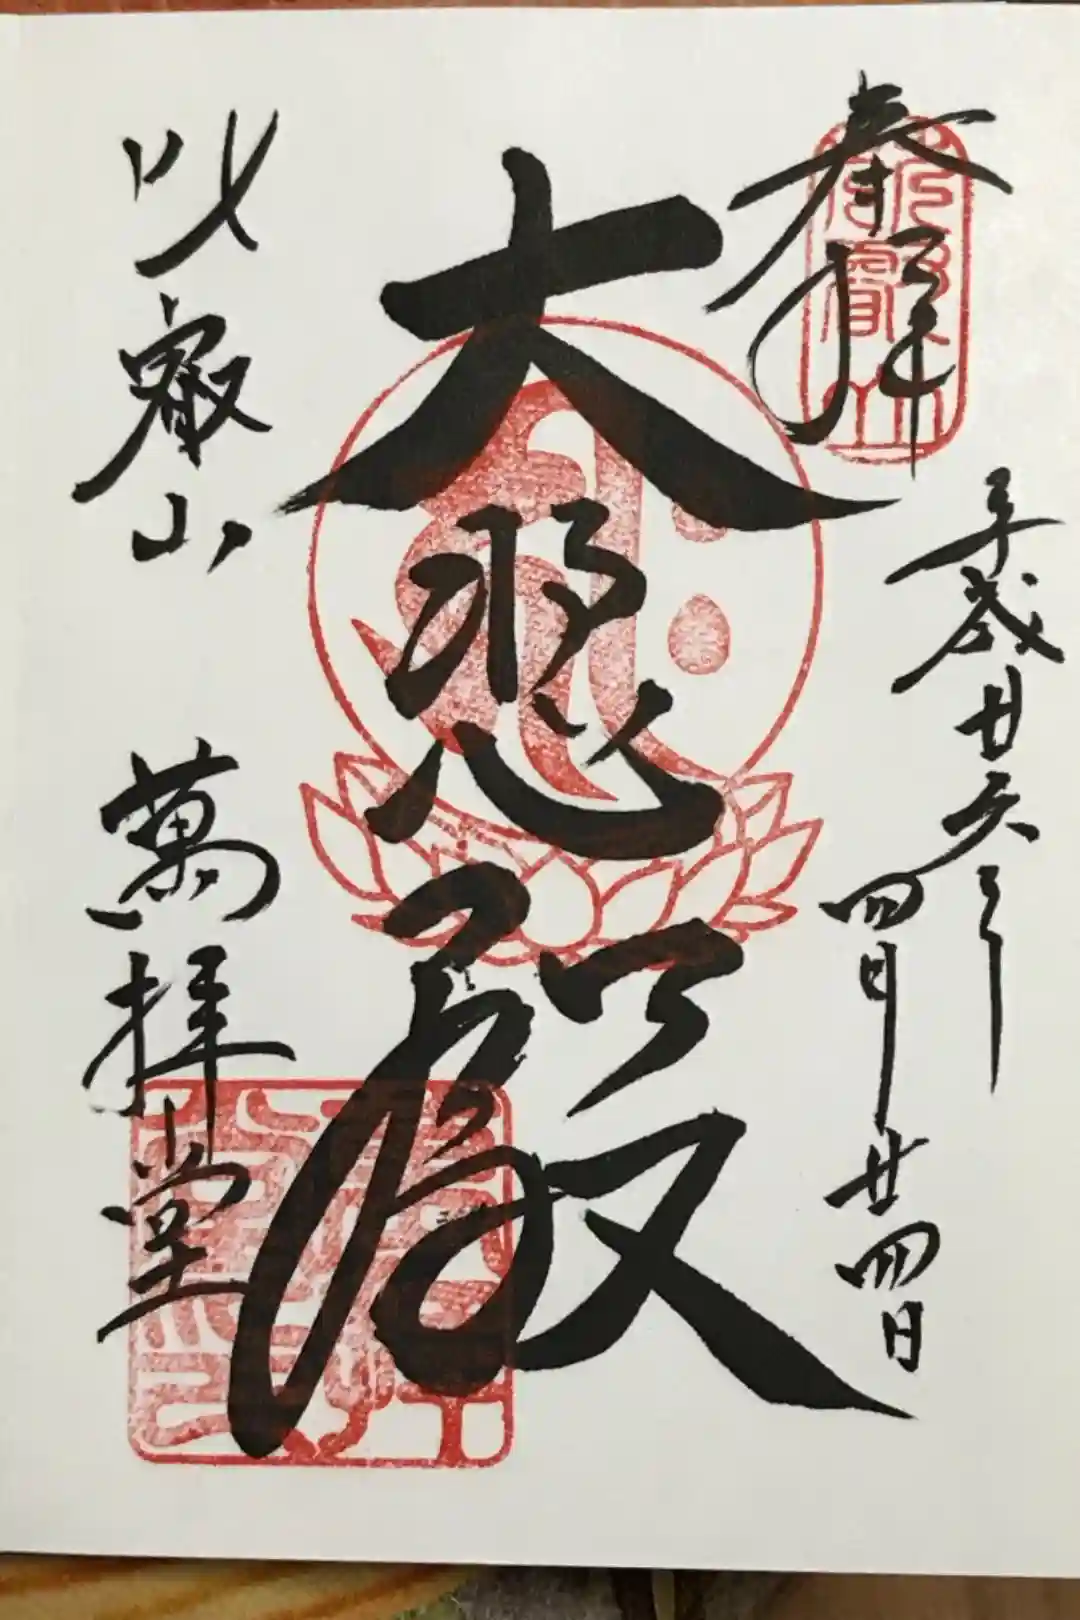 奉拝
平成廿六年
四月廿四日
大悲殿
比叡山 萬拝堂